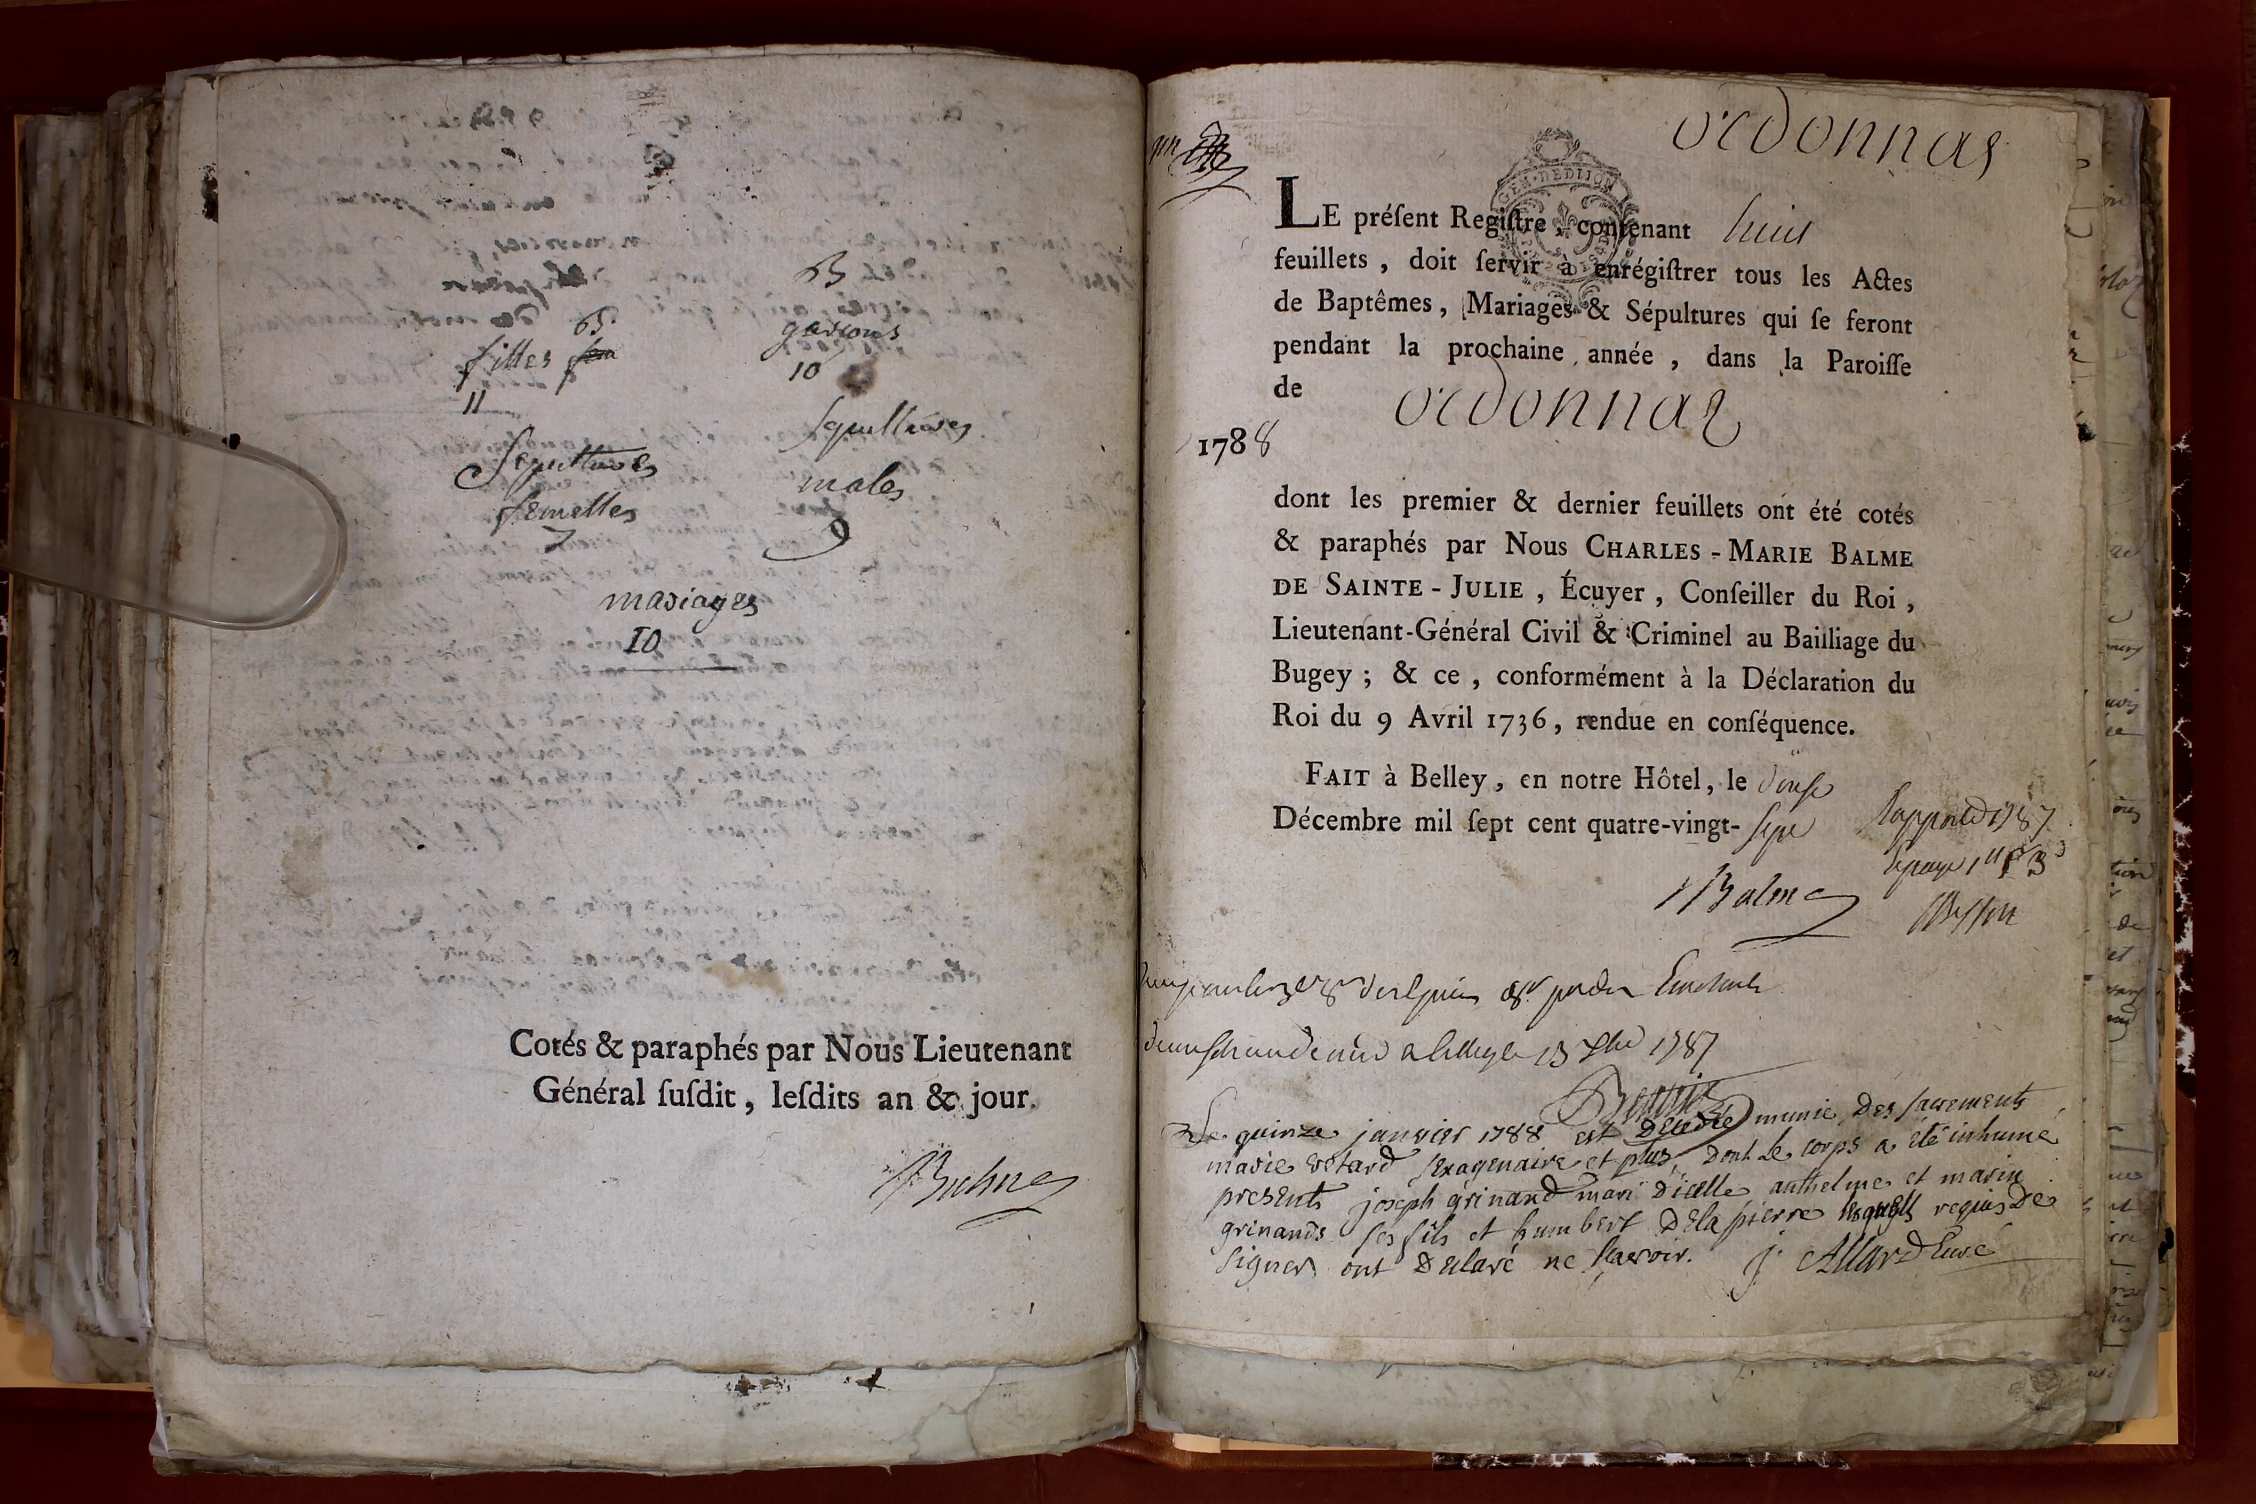 B
B
garsons
filles
10
11
Sepultures
Sepultures
males
femelles
9
7
mariages
10
Cotés & paraphés par Nous Lieutenant
Général ſuſdit, leſdits an & jour.
Balme
ordonnas
GEN. DE DIJON
LE préſent Regiſtre, contenant huit
feuillets, doit ſervir à enrégiſtrer tous les Actes
de Baptêmes, Mariages & Sépultures qui ſe feront
pendant la prochaine année, dans la Paroiſſe
de ordonnas
1788
dont les premier & dernier feuillets ont été cotés
& paraphés par Nous CHARLES-MARIE BALME
DE SAINTE-JULIE, Écuyer, Conſeiller du Roi,
Lieutenant-Général Civil & Criminel au Bailliage du
Bugey; & ce, conformément à la Déclaration du
Roi du 9 Avril 1736, rendue en conſéquence.
FAIT à Belley, en notre Hôtel, le douſe
Décembre mil ſept cent quatre-vingt-ſept
1787
Balme
13 1787
Le quinze janvier 1788 est décédée munie des sacrements
marie vetard sexagenaire et plus, dont le corps a été inhumé
presents joseph grinand mari d'icelle anthelme et marin
grinands ses fils et humbert Delapierre lesquels requis de
signer ont declaré ne sçavoir. j. Allard Curé